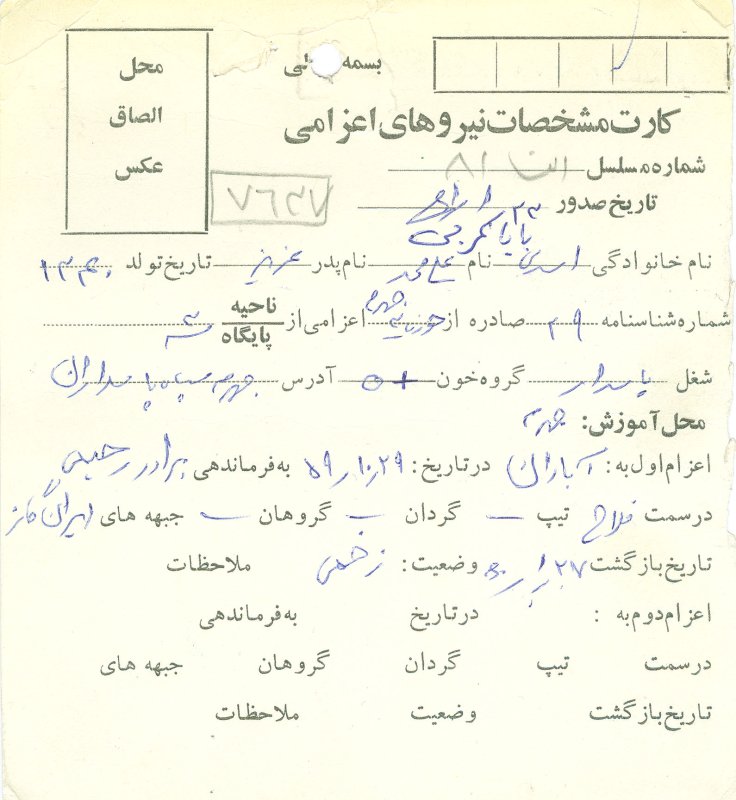 بسمه لی
محل الصاق عکس
کارت مشخصات نیروهای اعزامی
شماره مسلسل الف ۸۱
۷۶۳۷
تاریخ صدور
نام خانوادگی اسدی نام علی محمد نام پدر عزیز تاریخ تولد ۱۳۳۰
شماره شناسنامه ۲۹ صادره از جهرم اعزامی از ناحیه پایگاه
شغل پاسدار گروه خون O+ آدرس جهرم سپاه پاسداران
محل آموزش: جهرم
اعزام اول به: آبادان در تاریخ: ۵۹٫۱۰٫۲۹ به فرماندهی برادر رحیمی
در سمت فلاح تیپ — گردان — گروهان — جبهه های ایران گاز
تاریخ بازگشت ۲۷ وضعیت: زخمی ملاحظات
اعزام دوم به : در تاریخ به فرماندهی
در سمت تیپ گردان گروهان جبهه های
تاریخ بازگشت وضعیت ملاحظات